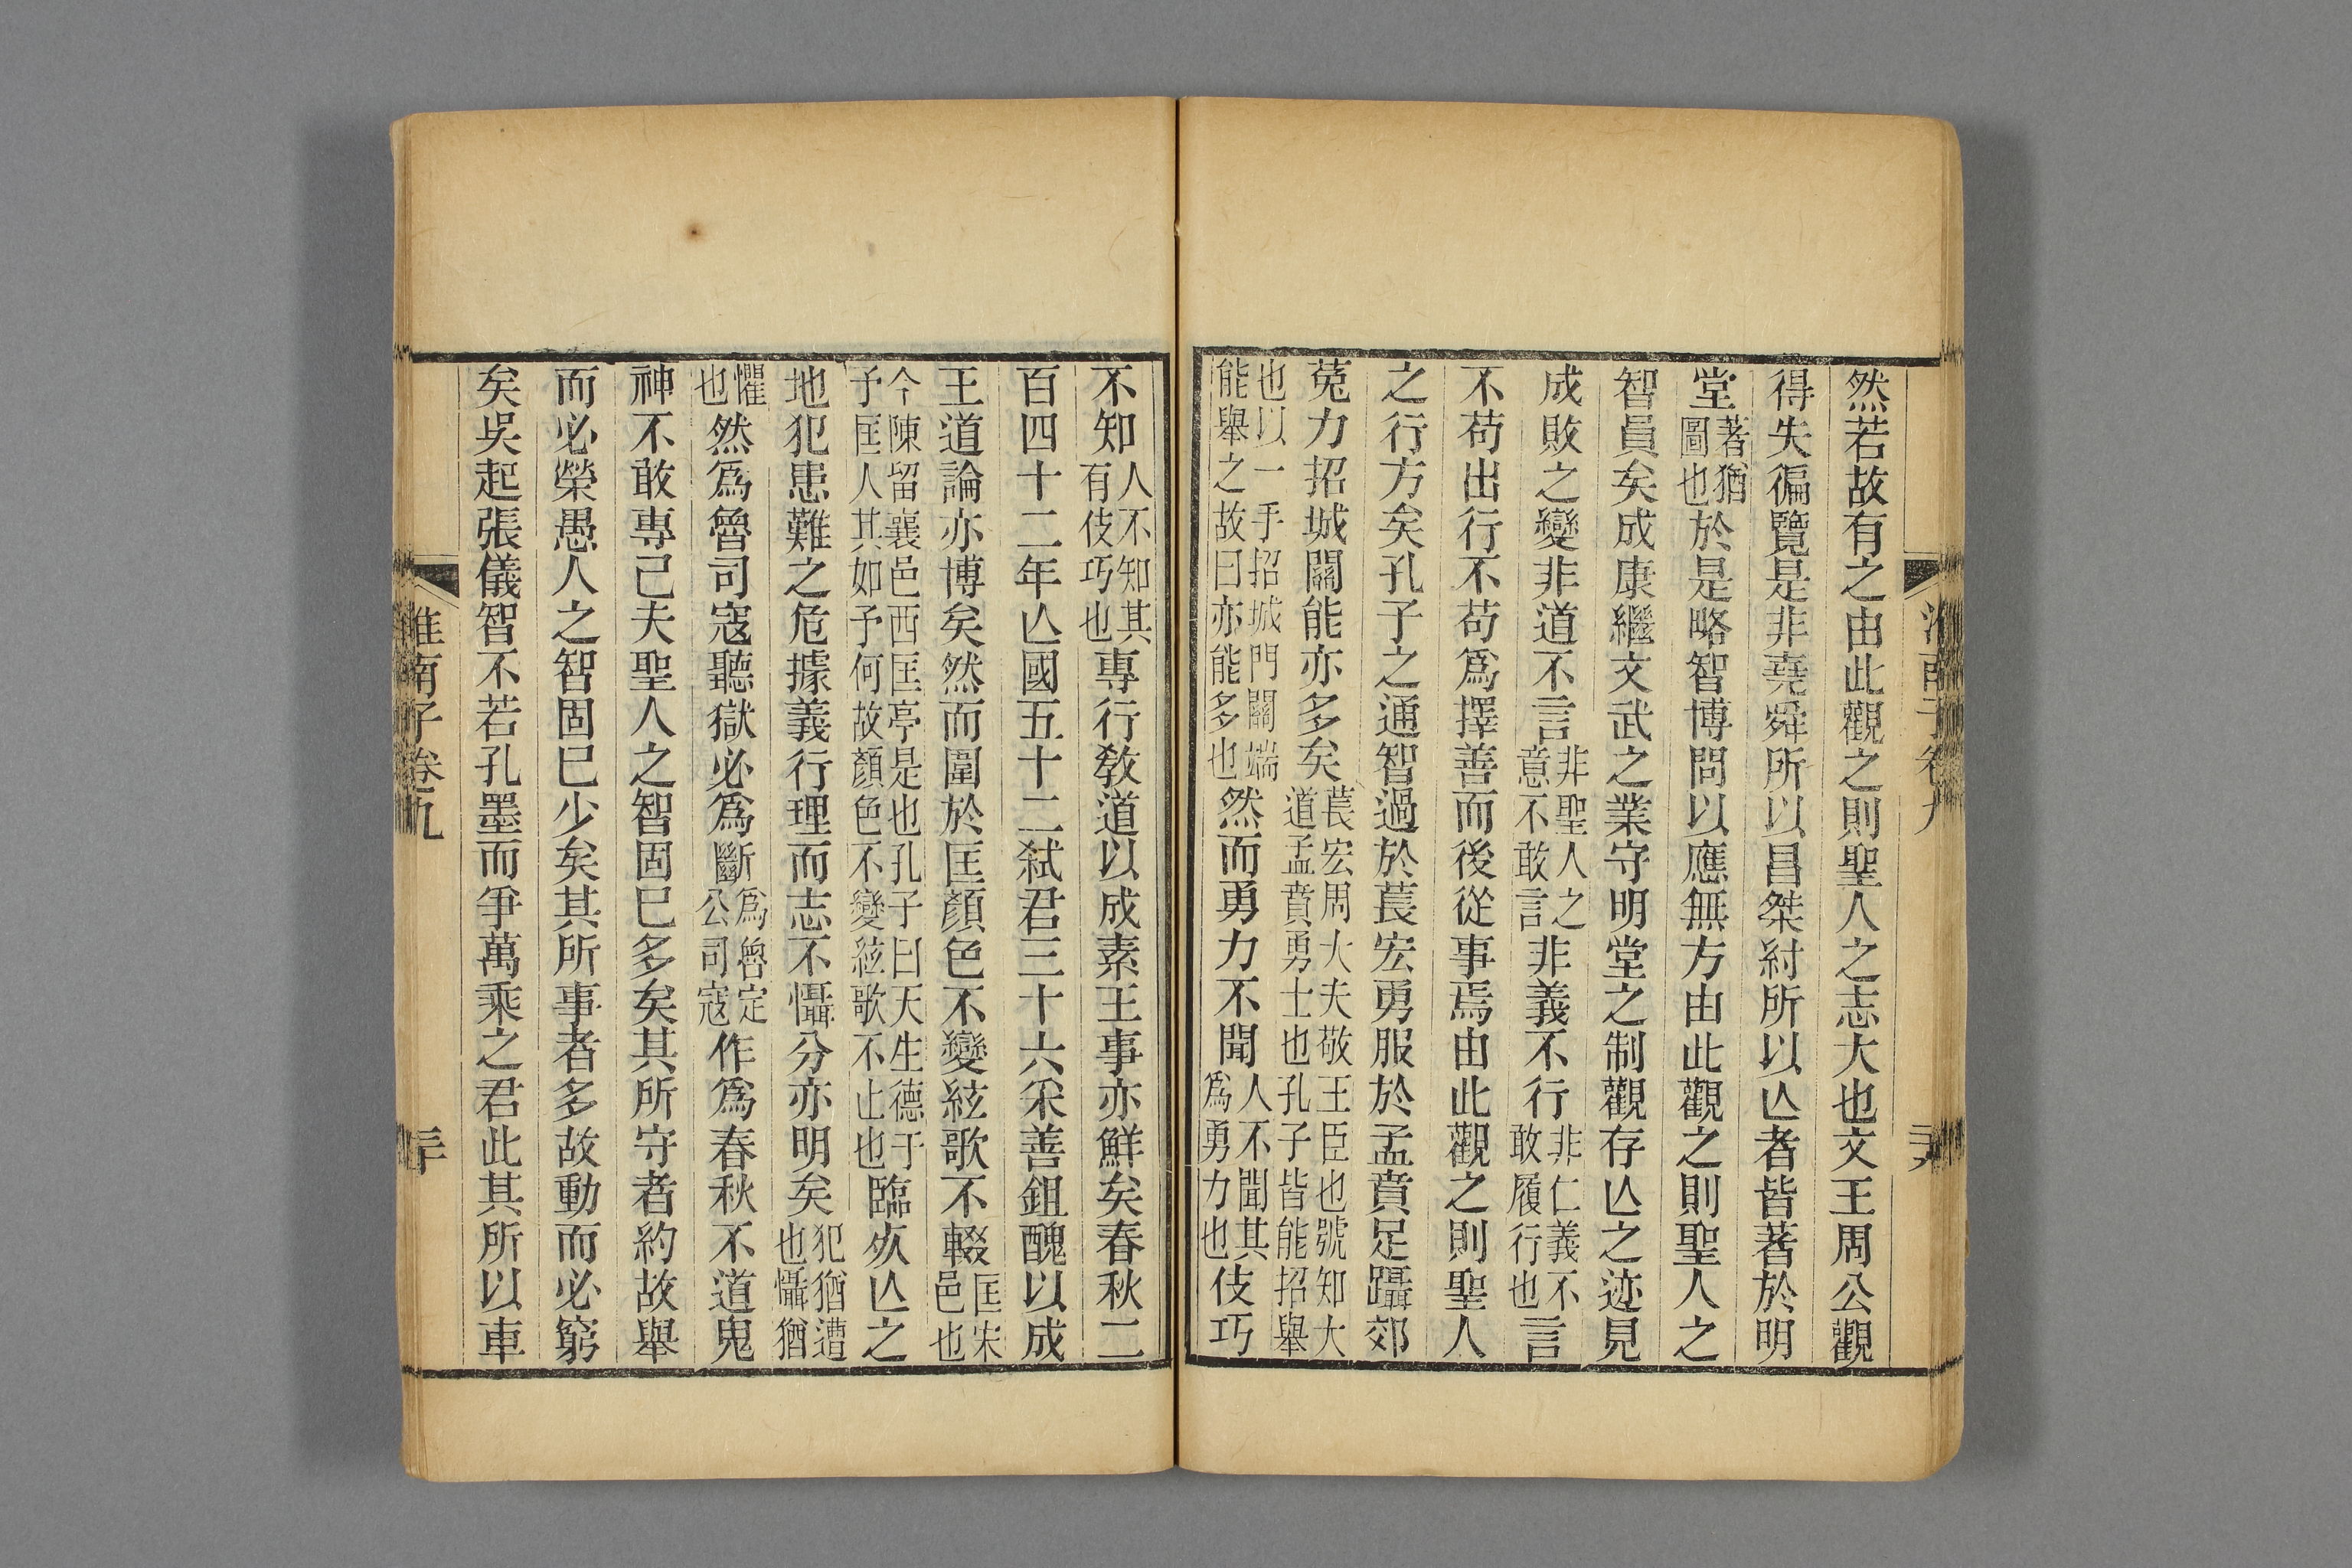 然若故有之由此觀之則聖人之志大也文王周公觀
得失徧覽是非堯舜所以昌桀紂所以亾者皆著於明
堂著猶圖也於是略智博問以應無方由此觀之則聖人之
智員矣成康繼文武之業守明堂之制觀存亾之迹見
成敗之變非道不言非聖人之意不敢言非義不行非仁義不敢履行也言
不苟出行不苟爲擇善而後從事焉由此觀之則聖人
之行方矣孔子之通智過於萇宏勇服於孟賁足躡郊
菟力招城關能亦多矣萇宏周大夫敬王臣也號知大道孟賁勇士也孔子皆能招舉
也以一手招城門關端能舉之故曰亦能多也然而勇力不聞人不聞其爲勇力也伎巧
不知人不知其有伎巧也專行敎道以成素王事亦鮮矣春秋二
百四十二年亾國五十二弒君三十六采善鉏醜以成
王道論亦博矣然而圍於匡顏色不變絃歌不輟匡宋邑也
今陳留襄邑西匡亭是也孔子曰天生德于予匡人其如予何故顏色不變絃歌不止也臨死亾之
地犯患難之危據義行理而志不懾分亦明矣犯猶遭也懾猶
懼也然爲魯司寇聽獄必爲斷爲魯定公司寇作爲春秋不道鬼
神不敢專己夫聖人之智固巳多矣其所守者約故舉
而必榮愚人之智固巳少矣其所事者多故動而必窮
矣吳起張儀智不若孔墨而爭萬乘之君此其所以車
淮南子卷九
三十